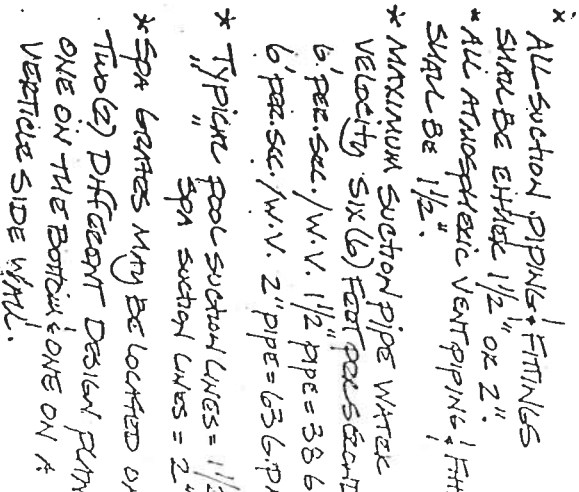 * ALL SUCTION PIPING & FITTINGS
SHALL BE EITHER 1 1/2" OR 2".
* ALL ATMOSPHERIC VENT PIPING & FITT
SHALL BE 1 1/2".
* MAXIMUM SUCTION PIPE WATER
VELOCITY SIX (6) FEET PER SECOND
6' PER. SEC. / W.V. 1 1/2" PIPE = 38 G
6' PER. SEC. / W.V. 2" PIPE = 63 G.P.M
* TYPICAL POOL SUCTION LINES = 1 1/2
" SPA SUCTION LINES = 2"
* SPA GRATES MAY BE LOCATED ON
TWO (2) DIFFERENT DESIGN PLAN
ONE ON THE BOTTOM & ONE ON A
VERTICLE SIDE WALL.